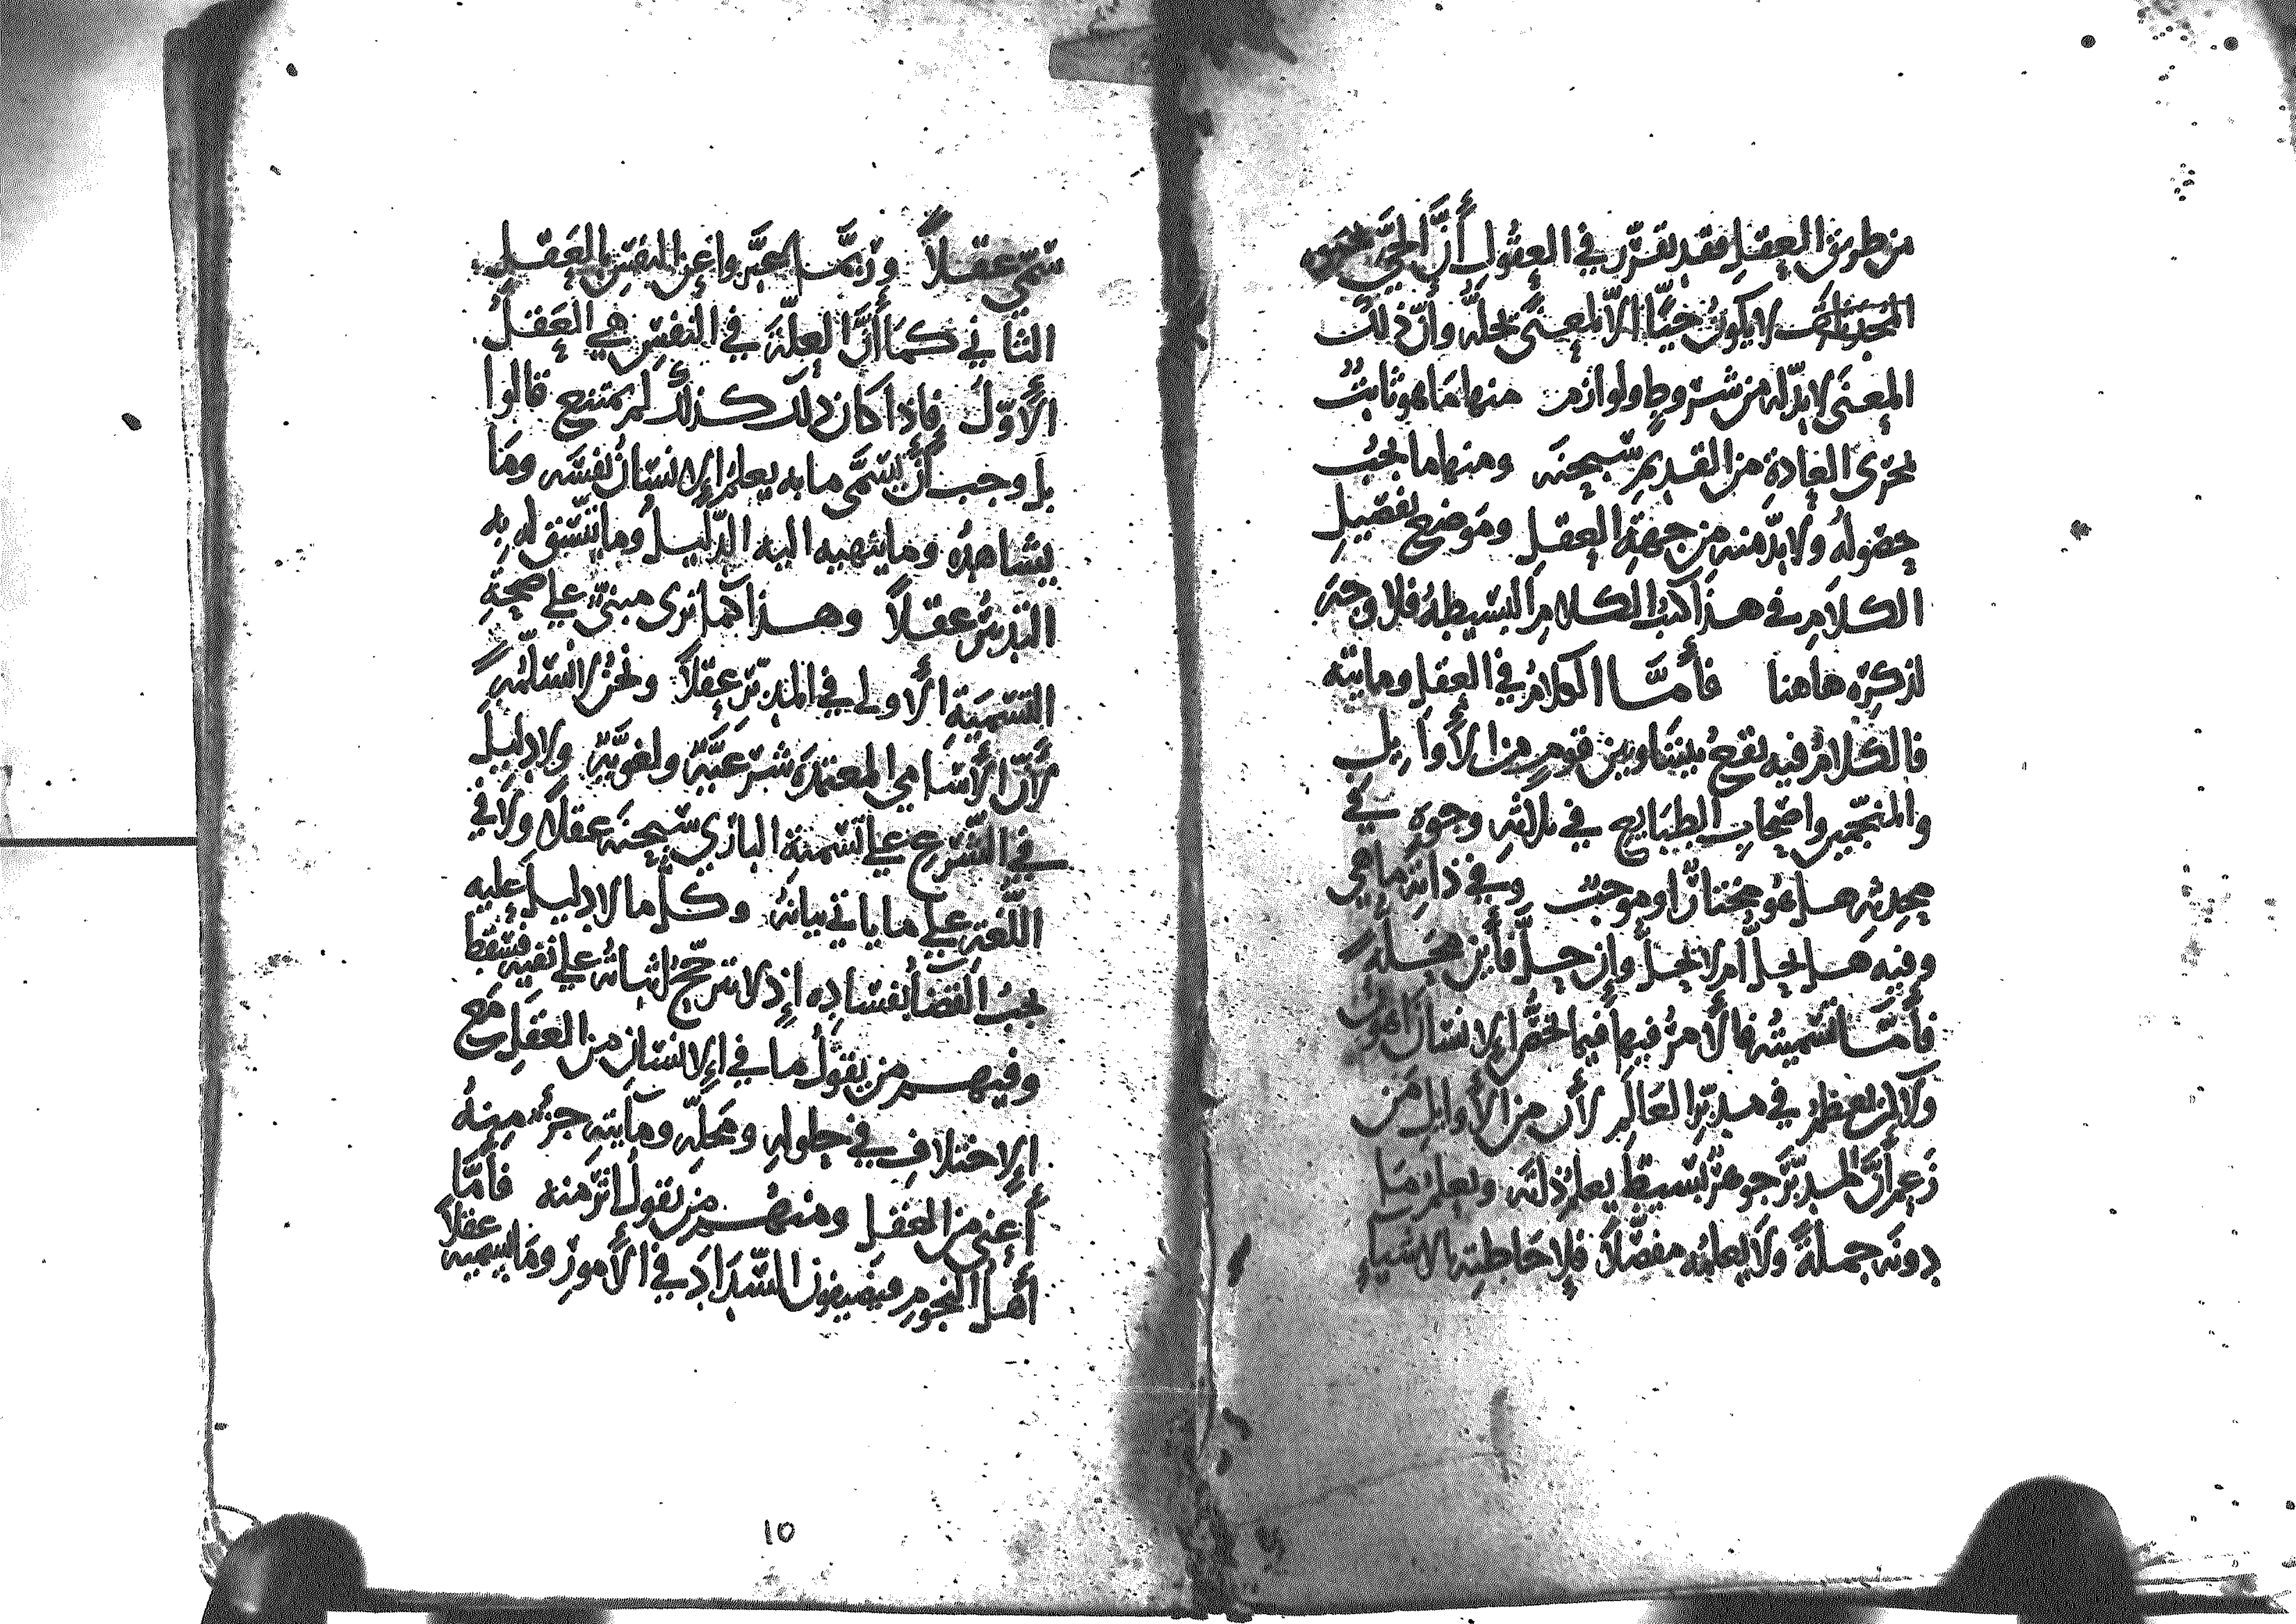 من طريق العقل فقد تقرر في العقول أنَّ الحيَّ من
المحدثات لا يكون حيًّا إلّا لمعنىً يحلّه وأنّ ذلك
المعنى لا بدّ له من شروطٍ ولوازم منها ما هو ثابتٌ
بمجرى العادة من القديم سبحنه ومنها ما يجب
حصوله ولا بدّ منه من جهة العقل وموضع تفصيل
الكلام في هذا كتب الكلام البسيطة فلا وجه
لذكره هاهنا فأمّا الكلام في العقل ومايته
فالكلام فيه يقع بيننا وبين قومٍ من الأوايل
والمنجّمين وأصحاب الطبايع في ثلاثة وجوه في
محدثه هل هو مختارٌ أو موجبٌ وفي ذاته ما هي
وفيه هل يحلّ أم لا يحلّ وإن حلّ فأين محلّه
فأمّا تسميته فالأمر فيها فيما يخصّ الإنسان أهون
ولكن يعظم في مدبّر العالم لأن من الأوايل من
زعم أنَّ المدبّر جوهرٌ بسيط يعلم ذاته ويعلم ما
دونه جملةً ولا يعلمه مفصّلاً فلإحاطته بالأشياء
سمّي عقلاً وربّما عبّروا عن النفس بالعقل
الثاني كما أنَّ العلّة في النفس هي العقل
الأوّل فإذا كان ذلك كذلك لم يمتنع قالوا
بل وجب أن يسمّى ما به يعلم الإنسان نفسه وما
يشاهده وما ينهيه اليه الدّليل وما يتّسق له به
التدبير عقلاً وهذا كما ترى مبنيٌّ على صحّة
التسمية الأولى في المدبّر عقلاً ونحن لا نسلّمه
لأنّ الأسامي المعتمدة شرعيّة ولغويّة ولا دليل
في الشّرع على تسمية الباري سبحنه عقلاً ولا في
اللّغة على ما يأتي بيانه وكلّ ما لا دليل عليه
يجب القضا بفساده إذ لا ترجّح لإثباته على نفيه فسقط
وفيهم من يقول ما في الإنسان من العقل مع
الإختلاف في حلوله ومحلّه ومايته جزء منه
أعني من العقل ومنهم من يقول أثر منه فأمّا
أهل النجوم فيضيفون السّداد في الأمور وما نسميه عقلاً
10